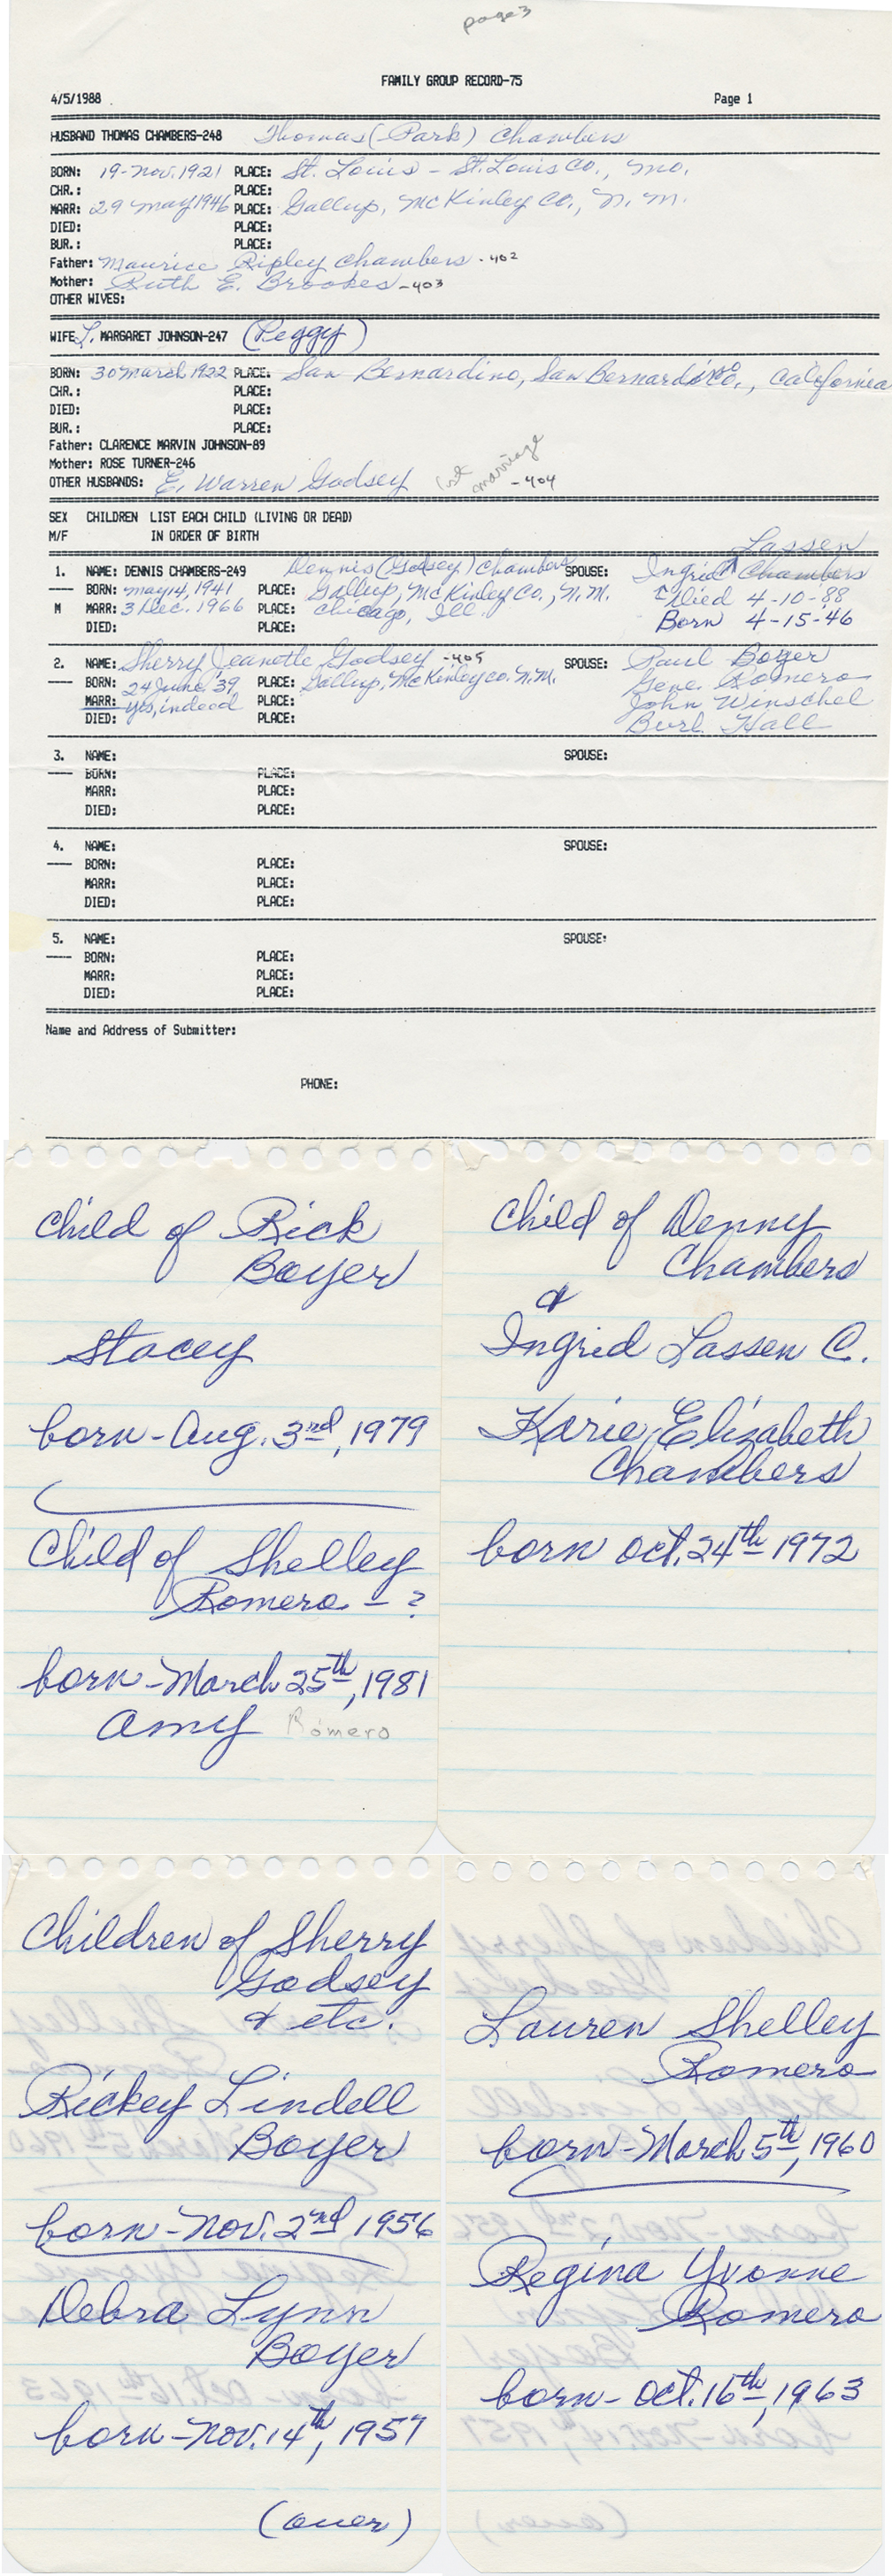 page 3
FAMILY GROUP RECORD-75
4/5/1988 Page 1
HUSBAND THOMAS CHAMBERS-248 Thomas (Park) Chambers
BORN: 19-Nov. 1921 PLACE: St. Louis - St. Louis Co., Mo.
CHR.: PLACE:
MARR: 29 May 1946 PLACE: Gallup, McKinley Co., N. M.
DIED: PLACE:
BUR.: PLACE:
Father: Maurice Ripley Chambers -402
Mother: Ruth E. Brookes -403
OTHER WIVES:
WIFE L. MARGARET JOHNSON-247 (Peggy)
BORN: 30 March 1922 PLACE: San Bernardino, San Bernardino Co., California
CHR.: PLACE:
DIED: PLACE:
BUR.: PLACE:
Father: CLARENCE MARVIN JOHNSON-89
Mother: ROSE TURNER-246
OTHER HUSBANDS: E. Warren Godsey 1st marriage -404
SEX CHILDREN LIST EACH CHILD (LIVING OR DEAD)
M/F IN ORDER OF BIRTH
Lassen
1. NAME: DENNIS CHAMBERS-249 Dennis (Godsey) Chambers SPOUSE: Ingrid ^ Chambers
BORN: May 14, 1941 PLACE: Gallup, McKinley Co., N. M. Died 4-10-'88
M MARR: 3 Dec. 1966 PLACE: Chicago, Ill. Born 4-15-'46
DIED: PLACE:
2. NAME: Sherry Jeanette Godsey -405 SPOUSE: Paul Boyer
BORN: 24 June '39 PLACE: Gallup, McKinley Co. N.M. Gene Romero
MARR: yes, indeed PLACE: John Winschel
DIED: PLACE: Burl Hall
3. NAME: SPOUSE:
BORN: PLACE:
MARR: PLACE:
DIED: PLACE:
4. NAME: SPOUSE:
BORN: PLACE:
MARR: PLACE:
DIED: PLACE:
5. NAME: SPOUSE:
BORN: PLACE:
MARR: PLACE:
DIED: PLACE:
Name and Address of Submitter:
PHONE:
Child of Rick
Boyer
Stacey
born - Aug. 3rd, 1979
Child of Shelley
Romero - ?
born - March 25th, 1981
Amy Romero
Child of Denny
Chambers
&
Ingrid Lassen C.
Karie Elizabeth
Chambers
born Oct. 24th 1972
Children of Sherry
Godsey
& etc.
Rickey Lindell
Boyer
born - Nov. 2nd 1956
Debra Lynn
Boyer
born - Nov. 14th, 1957
(over)
Lauren Shelley
Romero
born - March 5th, 1960
Regina Yvonne
Romero
born - Oct. 16th, 1963